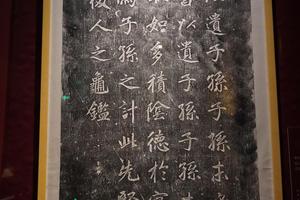 遺子孫子孫未
以遺子孫子孫未
如多積陰德於
為子孫之計此先賢
後人之龜鑑